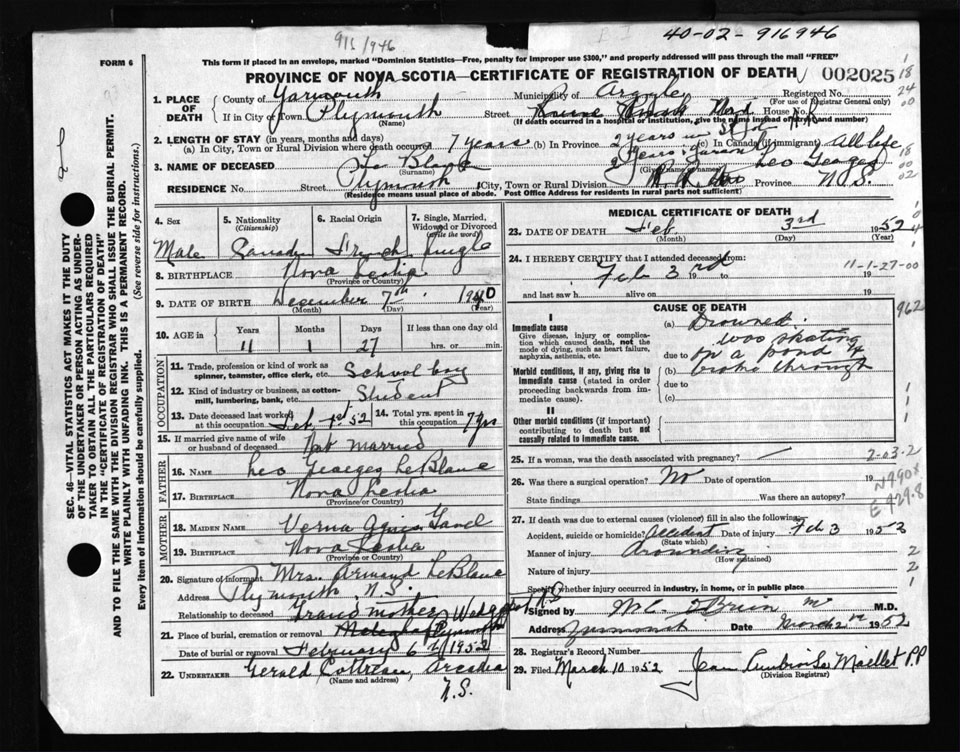 911/946
40-02-916946
FORM 6
This form if placed in an envelope, marked "Dominion Statistics—Free, penalty for improper use $300," and properly addressed will pass through the mail "FREE"
PROVINCE OF NOVA SCOTIA—CERTIFICATE OF REGISTRATION OF DEATH
002025
1. PLACE OF DEATH
County of Yarmouth Municipality of Argyle Registered No.
(For use of Registrar General only)
If in City or Town. Plymouth Street House No.
(Name) (If death occurred in a hospital or institution, give the name instead of street and number)
2. LENGTH OF STAY (in years, months and days)
(a) In City, Town or Rural Division where death occurred 7 years (b) In Province 2 years in (c) In Canada (if immigrant) All life
3. NAME OF DECEASED Le Blanc Leo George
(Surname) (Given name or names)
RESIDENCE No. Street Plymouth City, Town or Rural Division Province N.S.
(Residence means usual place of abode. Post Office Address for residents in rural parts not sufficient)
4. Sex
5. Nationality (Citizenship)
6. Racial Origin
7. Single, Married, Widowed or Divorced (write the word)
Male Canadian French Single
8. BIRTHPLACE Nova Scotia
(Province or Country)
9. DATE OF BIRTH December 7th 1940
(Month) (Day) (Year)
10. AGE in Years Months Days If less than one day old
11 1 27 hrs. or min.
OCCUPATION
11. Trade, profession or kind of work as spinner, teamster, office clerk, etc. School boy
12. Kind of industry or business, as cotton-mill, lumbering, bank, etc. Student
13. Date deceased last worked at this occupation Feb 1st 52 14. Total yrs. spent in this occupation 7 yrs
15. If married give name of wife or husband of deceased Not married
FATHER
16. NAME Leo George LeBlanc
17. BIRTHPLACE Nova Scotia
(Province or Country)
MOTHER
18. MAIDEN NAME Verna Agnes
19. BIRTHPLACE Nova Scotia
(Province or Country)
20. Signature of informant Mrs. Armand LeBlanc
Address Plymouth N.S.
Relationship to deceased Grand mother
21. Place of burial, cremation or removal
Date of burial or removal February 6 1952
22. UNDERTAKER Gerald Cottreau, Arcadia
(Name and address)
N.S.
MEDICAL CERTIFICATE OF DEATH
23. DATE OF DEATH Feb. 3rd 1952
(Month) (Day) (Year)
24. I HEREBY CERTIFY that I attended deceased from:
Feb 3rd 19 to 19
11-1-27-00
and last saw h alive on 19
CAUSE OF DEATH
962
I
Immediate cause
Give disease, injury or complication which caused death, not the mode of dying, such as heart failure, asphyxia, asthenia, etc.
(a) Drowned.
was skating
due to on a pond
Morbid conditions, if any, giving rise to immediate cause (stated in order proceeding backwards from immediate cause).
(b) broke through
due to
(c)
II
Other morbid conditions (if important) contributing to death but not causally related to immediate cause.
25. If a woman, was the death associated with pregnancy?
2-03-2
26. Was there a surgical operation? No Date of operation 19
N990.8
State findings Was there an autopsy?
E929.8
27. If death was due to external causes (violence) fill in also the following:—
Accident, suicide or homicide? Accident Date of injury Feb 3 1952
(State which)
Manner of injury Drowning
(How sustained)
Nature of injury
Specify whether injury occurred in industry, in home, or in public place
Signed by M.C. O'Brien M.D.
Address Date March 2nd 1952
28. Registrar's Record Number
29. Filed March 10 1952
(Division Registrar)
SEC. 46—VITAL STATISTICS ACT MAKES IT THE DUTY OF THE UNDERTAKER OR PERSON ACTING AS UNDERTAKER TO OBTAIN ALL THE PARTICULARS REQUIRED IN THE "CERTIFICATE OF REGISTRATION OF DEATH" AND TO FILE THE SAME WITH THE DIVISION REGISTRAR WHO SHALL ISSUE THE BURIAL PERMIT.
WRITE PLAINLY WITH UNFADING INK. THIS IS A PERMANENT RECORD.
Every item of information should be carefully supplied. (See reverse side for instructions.)